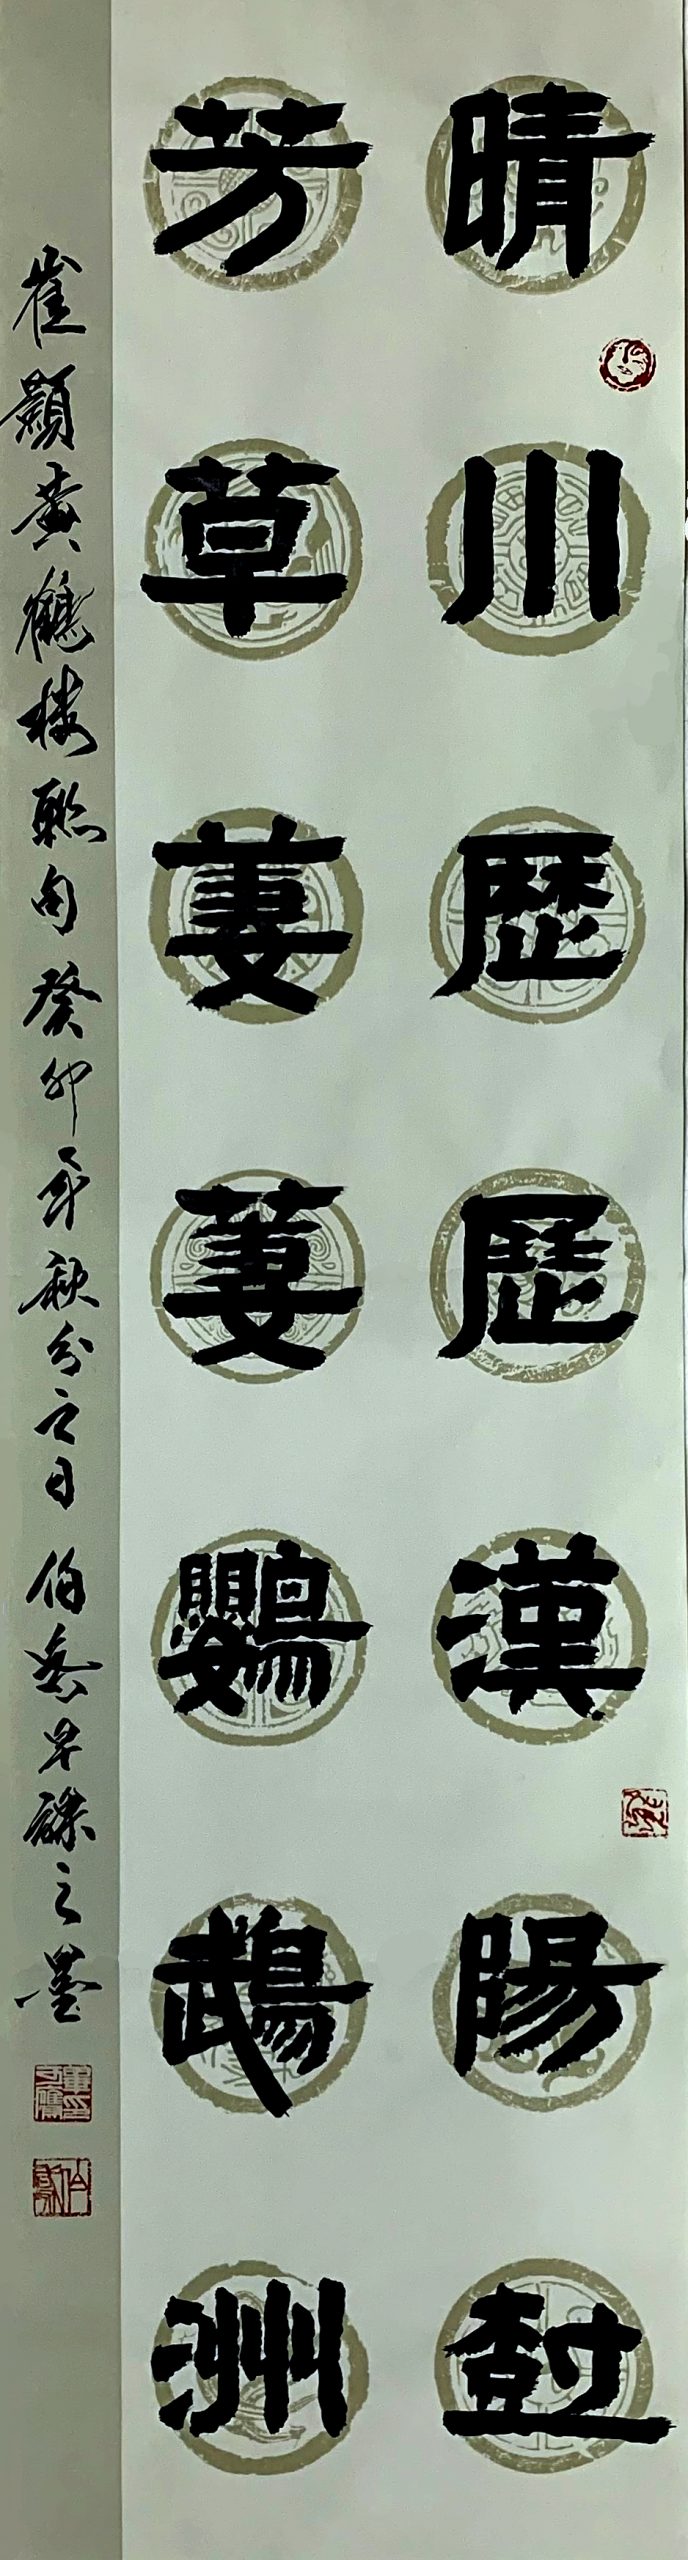 晴川歷歷漢陽樹
芳草萋萋鸚鵡洲
崔顥黃鶴楼聯句癸卯年秋分之日伯之墨